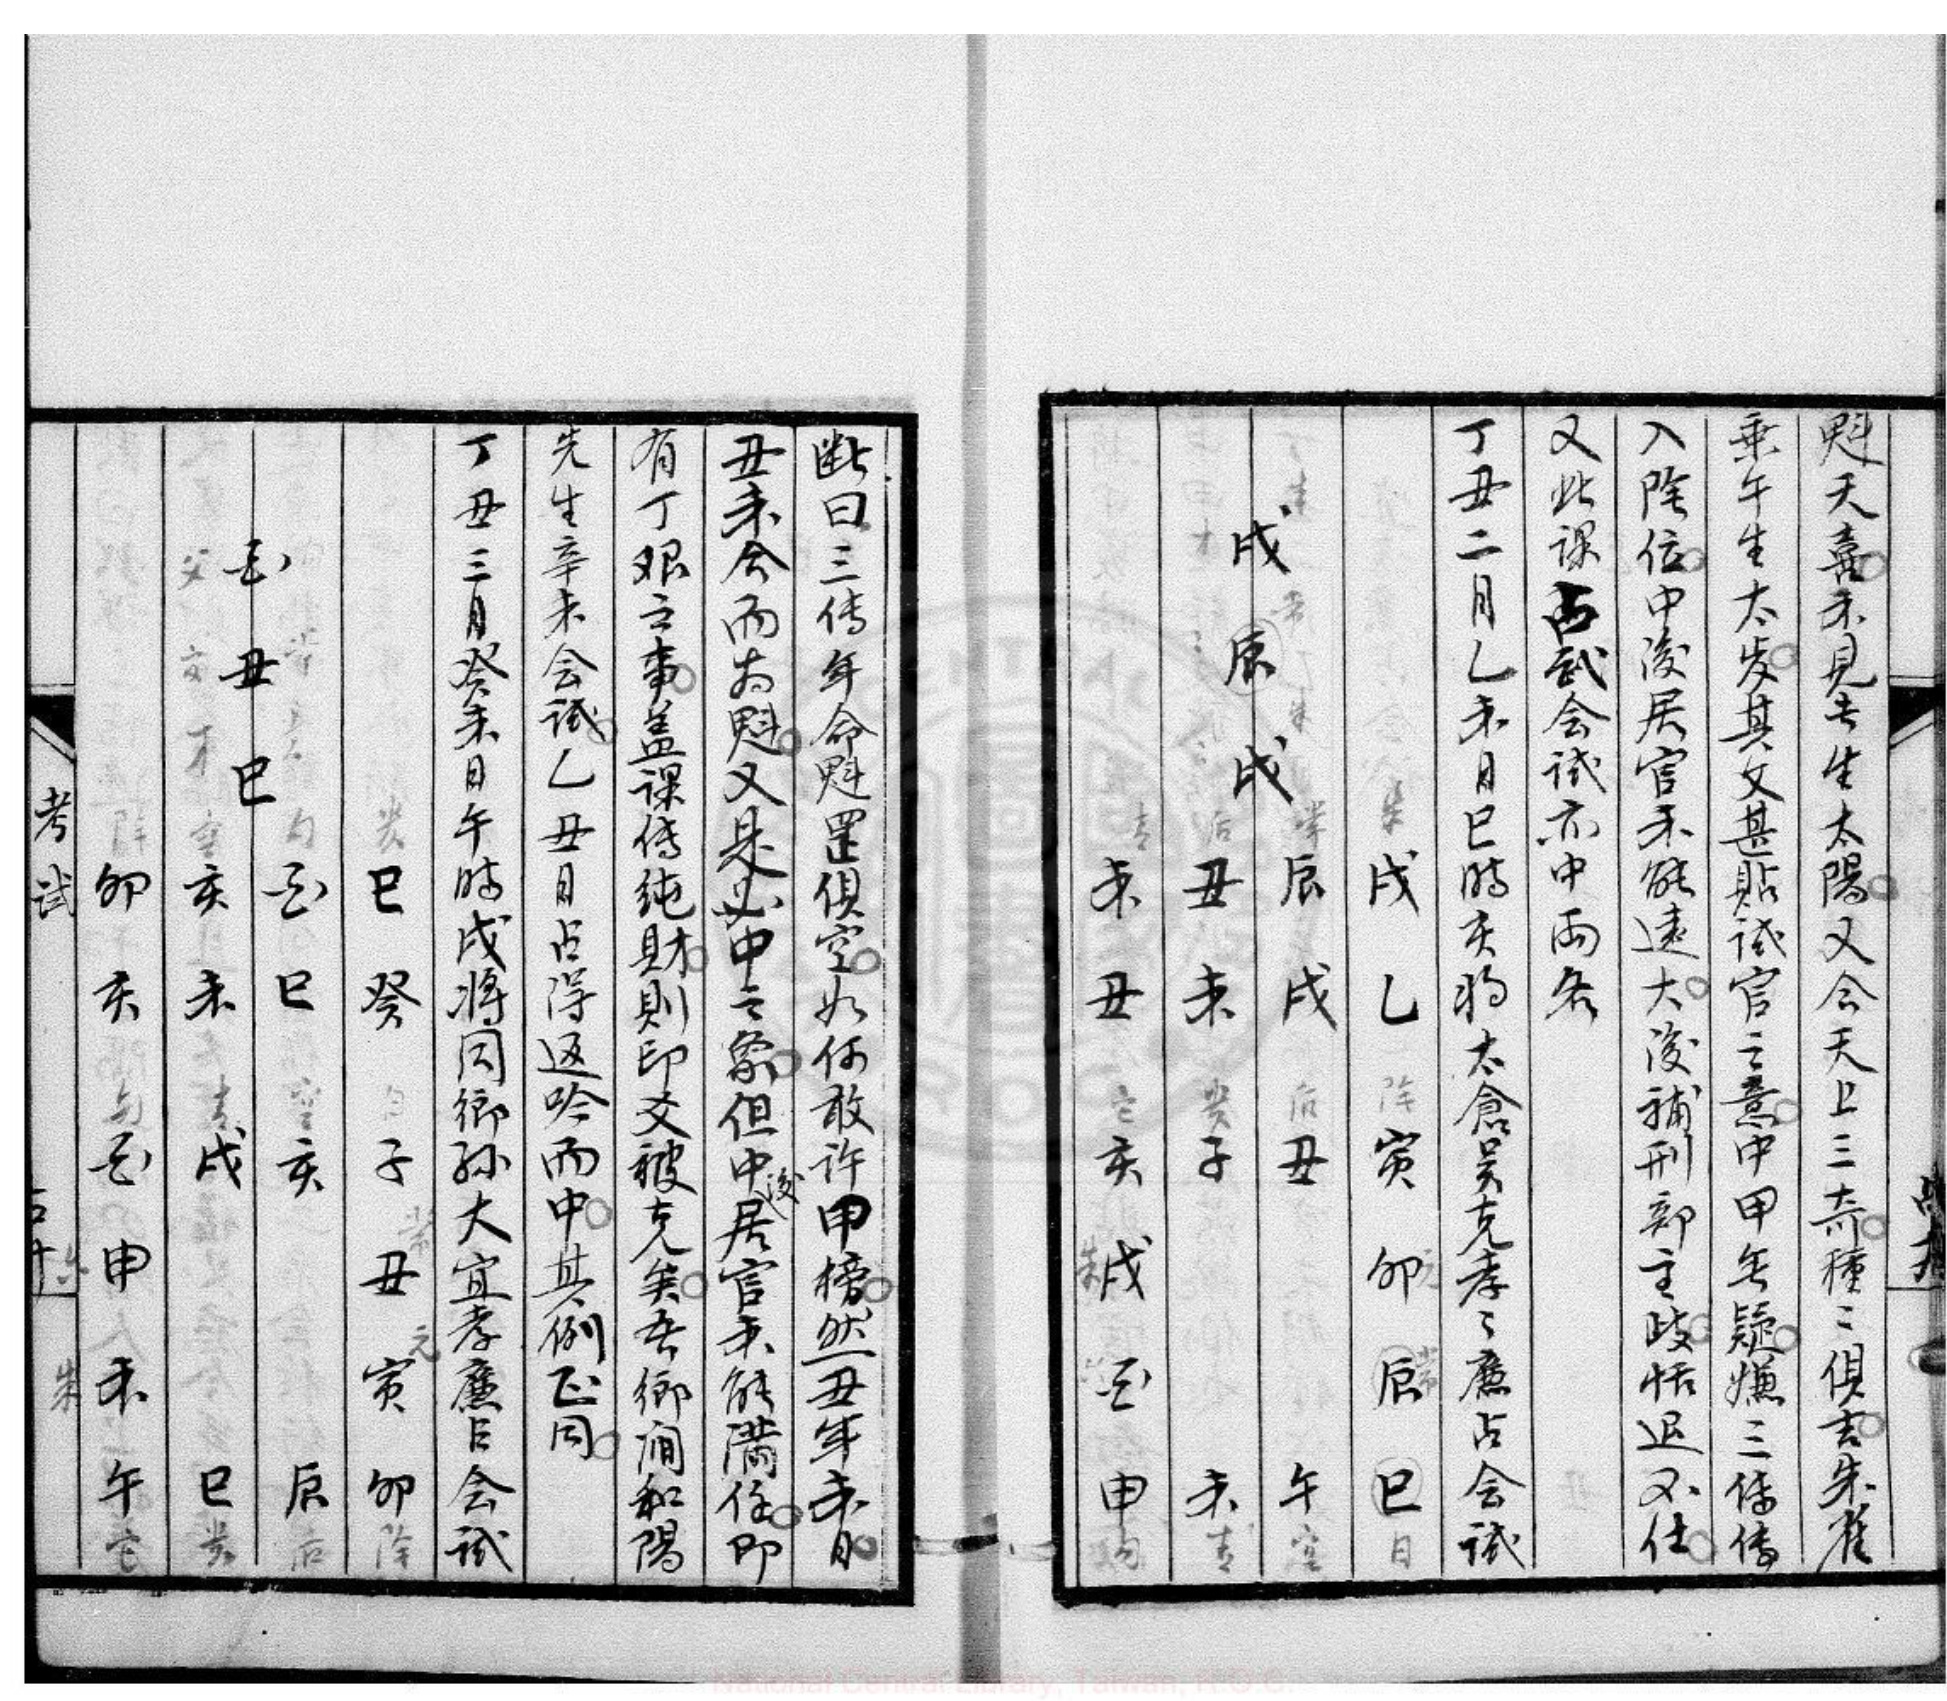 魁天喜未見告生太陽又会天上三奇種〻俱吉朱雀
乗午生太岁其文甚貼試官之意中甲无疑嫌三传
入陰位中後居官未能遠大後補刑部主政恬退不仕
又此课占武会試亦中両名
丁丑二月乙未日巳時亥将太倉吴克孝〻廉占会試
戌 乙 寅 卯 辰 巳
戌 辰 戌
辰 戌 丑 午
丑 未 子 未
未 丑 亥 戌 酉 申
断曰三传年命魁罡俱空如何敢许甲榜然丑年未日
丑未会而为魁又是必中之象但中後居官未能满任即
有丁艰之事盖课传纯財則印父被克矣吾鄉润和陽
先生辛未会試乙丑日占得返吟而中其例正同
丁丑三月癸未日午時戌将同鄉孙大宜孝廉占会試
巳 癸 子 丑 寅 卯
酉 丑 巳
酉 巳 亥 辰
亥 未 戌 巳
卯 亥 酉 申 未 午
考試
National Central Library, Taiwan, R.O.C.